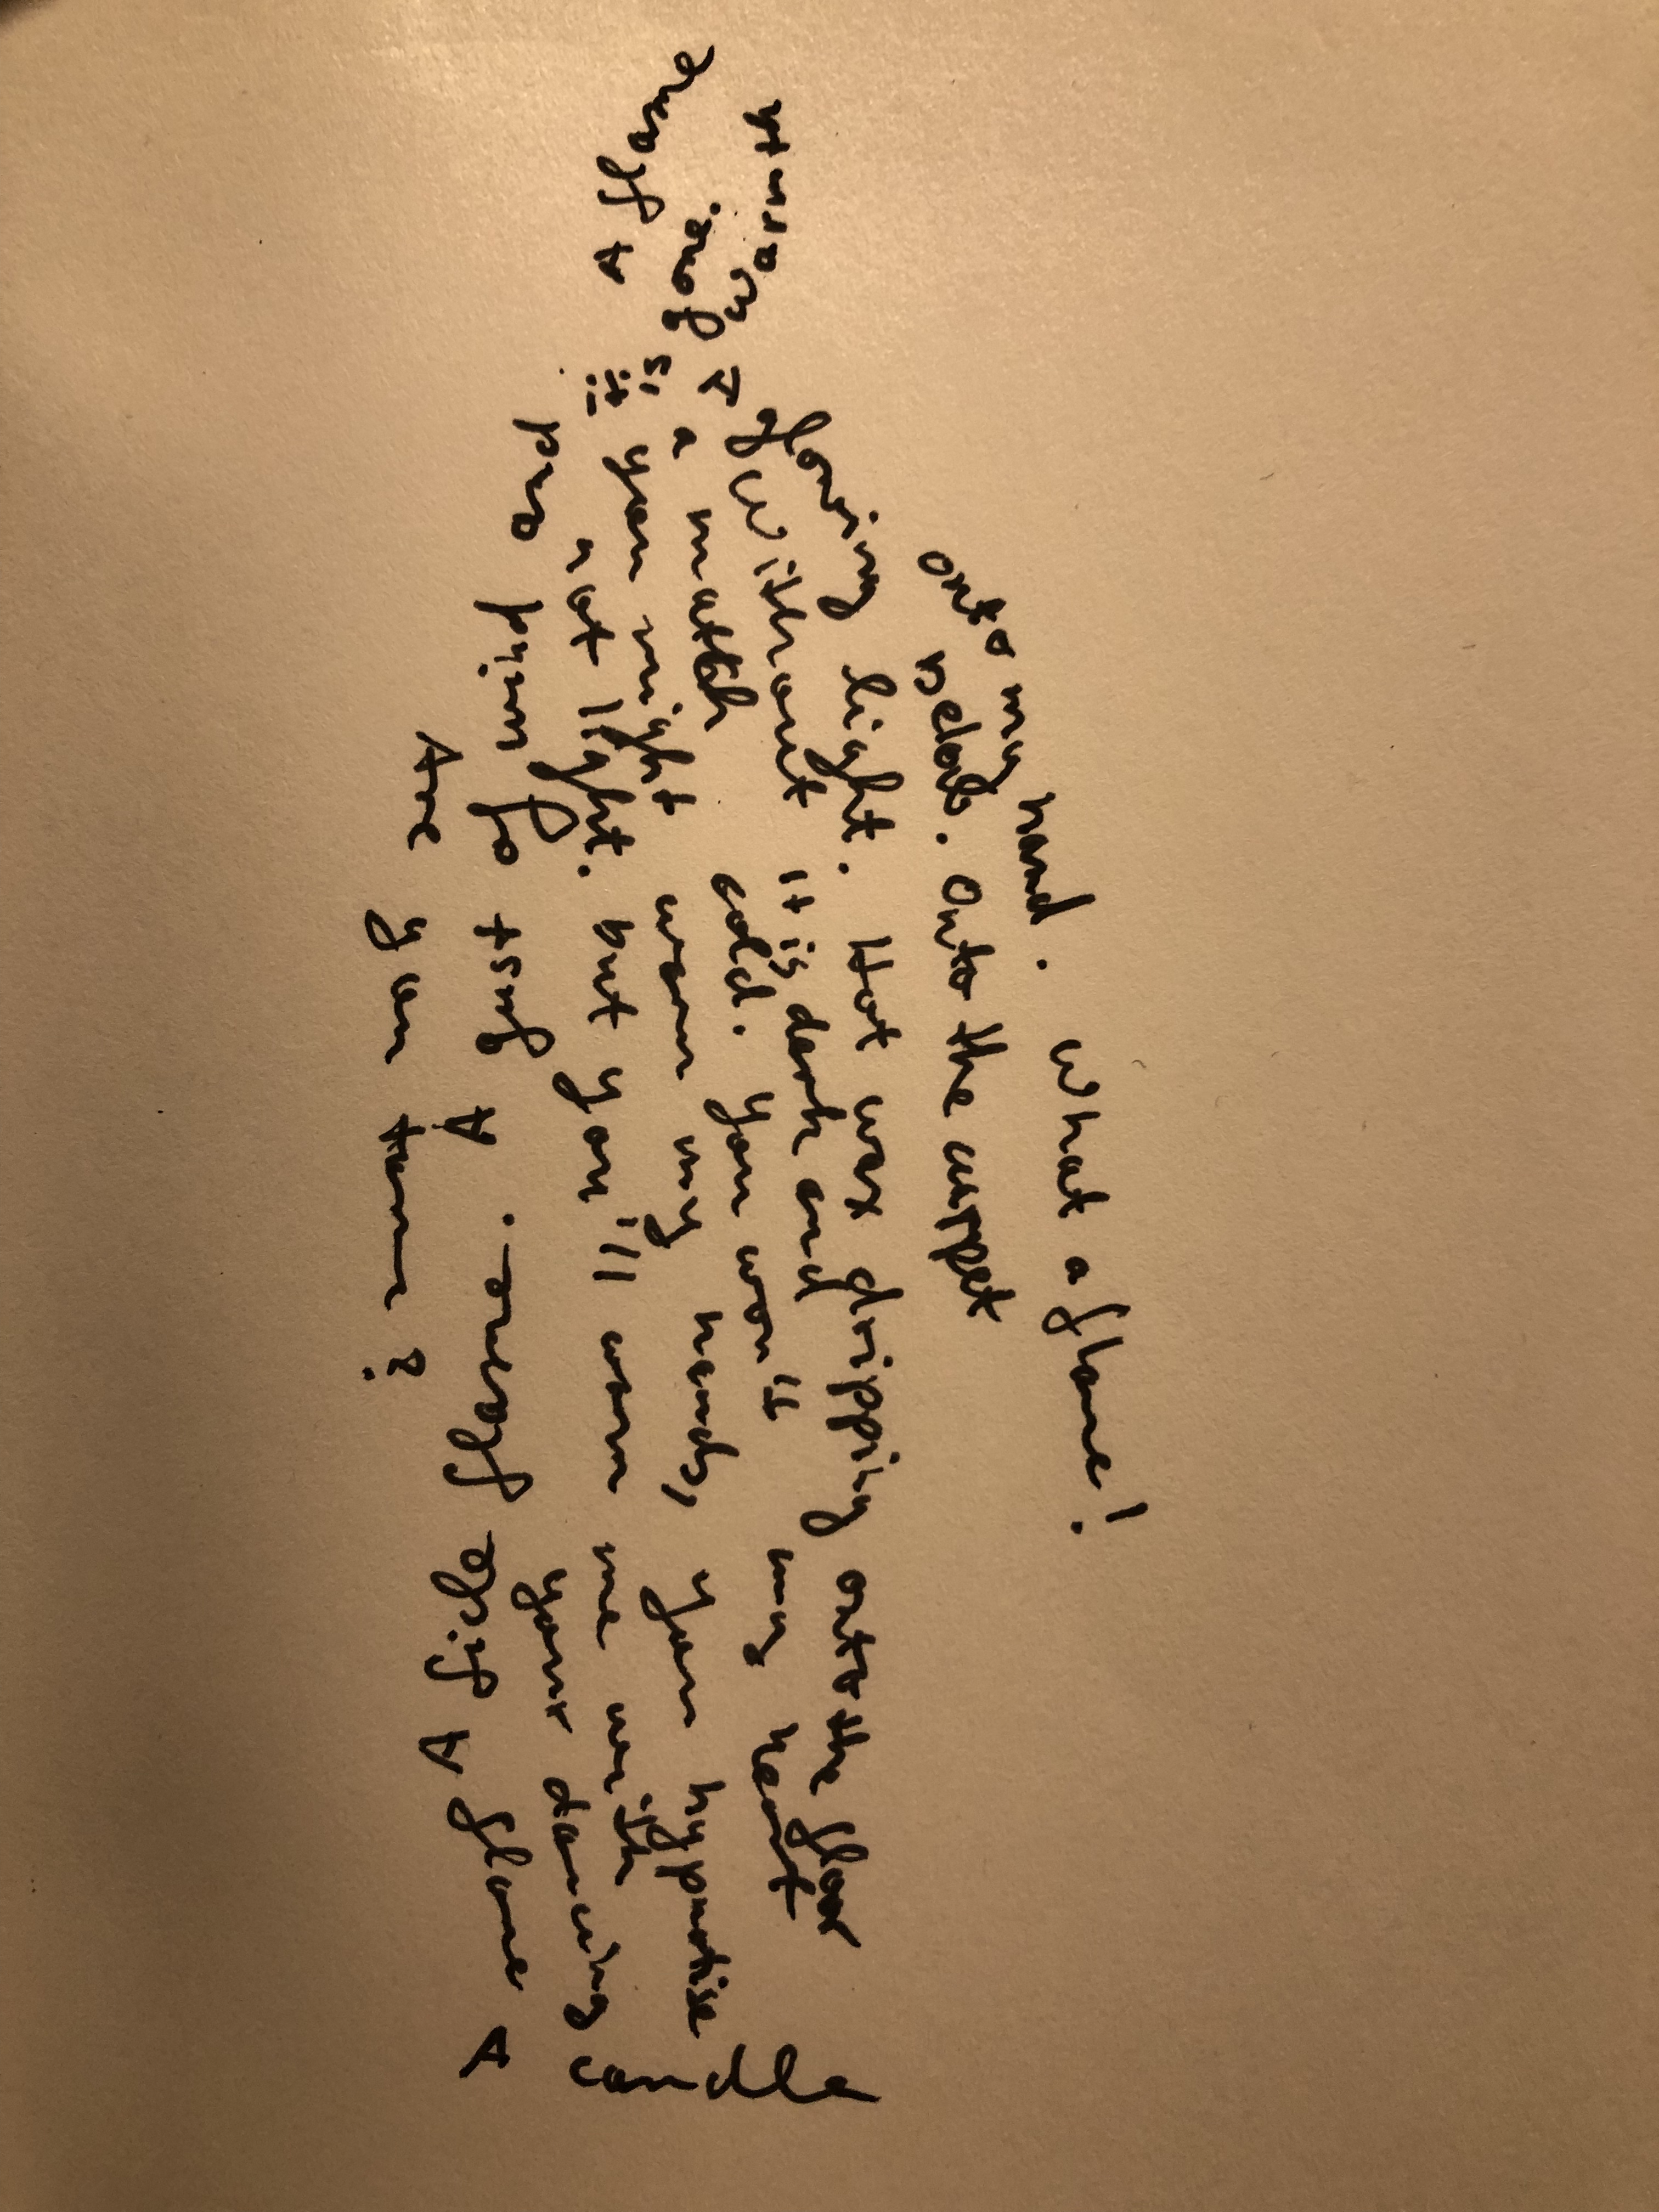 onto my hand. What a flame!
below. Onto the carpet
glowing light. Hot wax dripping onto the floor
Without it is dark and my heart
a match cold. You won't
you might warm my hands, you hypnotise
not light. but you'll warm me with
your dancing
candle
A flame A life flame. A gust of wind and it is gone.
A flame
A warmth
Are you tame?